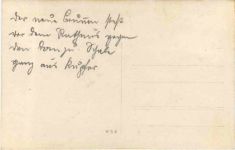 der neue Brunnen steht
vor dem Rathaus gegen
den Schale
ganz aus Kupfer